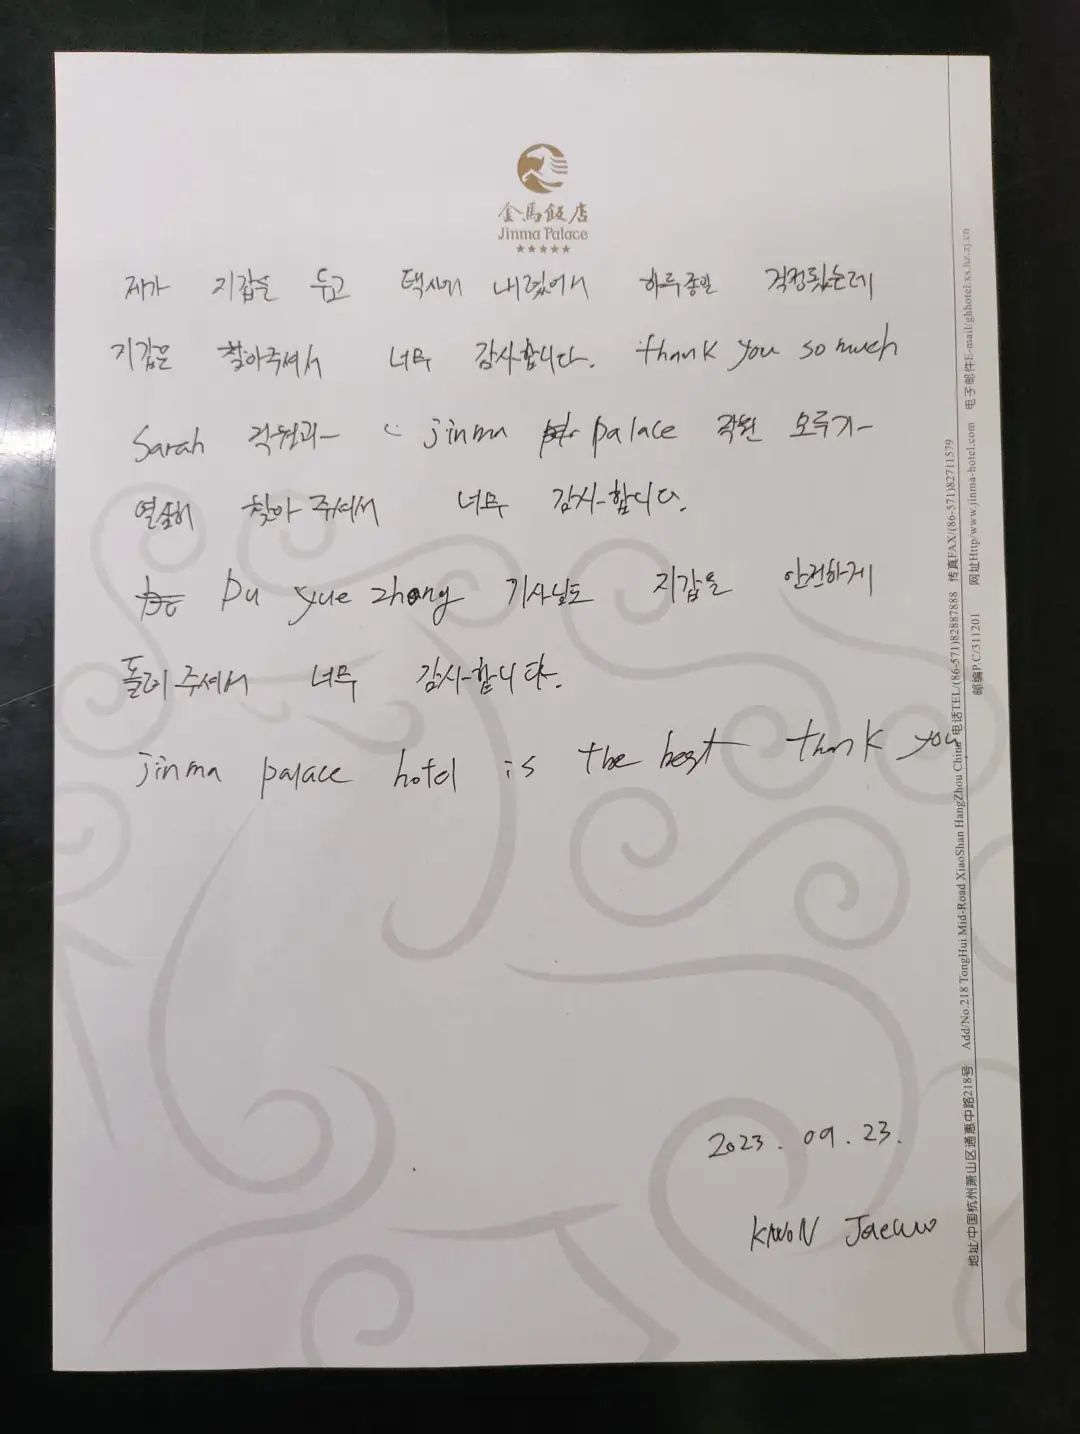 金馬飯店
Jinma Palace
★★★★★
제가 지갑을 두고 택시에 내렸어서 하루종일 걱정됬는데
지갑을 찾아주셔서 너무 감사합니다. thank you so much
Sarah 직원과 jinma palace 직원 모두가
열심히 찾아 주셔서 너무 감사합니다.
Du yue zhong 기사님도 지갑을 안전하게
돌려주셔서 너무 감사합니다.
jinma palace hotel is the best thank you
2023. 09. 23.
KWON Jaewoo
地址/中国杭州萧山区通惠中路218号 Add/No.218 TongHui Mid-Road XiaoShan HangZhou China 电话TEL/(86-571)82887888 传真FAX/(86-571)82711579
邮编P.C/311201 网址Http/www.jinma-hotel.com 电子邮件E-mail/ghhotel.xs.hz.zj.cn